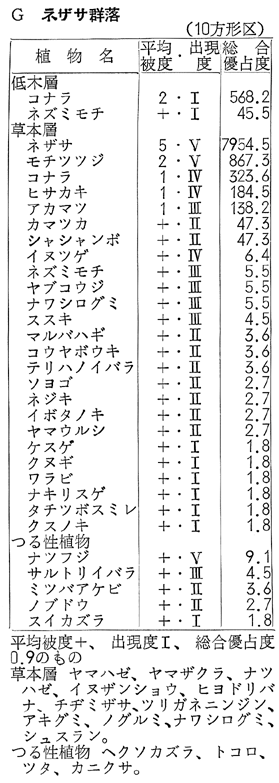 G ネザサ群落
(10方形区)
植物名 平均被度・出現度 総合優占度
低木層
コナラ 2・Ⅰ 568.2
ネズミモチ +・Ⅰ 45.5
草本層
ネザサ 5・Ⅴ 7954.5
モチツツジ 2・Ⅴ 867.3
コナラ 1・Ⅳ 323.6
ヒサカキ 1・Ⅳ 184.5
アカマツ 1・Ⅲ 138.2
カマツカ +・Ⅱ 47.3
シャシャンボ +・Ⅱ 47.3
イヌツゲ +・Ⅳ 6.4
ネズミモチ +・Ⅲ 5.5
ヤブコウジ +・Ⅲ 5.5
ナワシログミ +・Ⅲ 5.5
ススキ +・Ⅲ 4.5
マルバハギ +・Ⅱ 3.6
コウヤボウキ +・Ⅱ 3.6
テリハノイバラ +・Ⅱ 3.6
ソヨゴ +・Ⅱ 2.7
ネジキ +・Ⅱ 2.7
イボタノキ +・Ⅱ 2.7
ヤマウルシ +・Ⅱ 2.7
ケスゲ +・Ⅰ 1.8
クヌギ +・Ⅰ 1.8
ワラビ +・Ⅰ 1.8
ナキリスゲ +・Ⅰ 1.8
タチツボスミレ +・Ⅰ 1.8
クスノキ +・Ⅰ 1.8
つる性植物
ナツフジ +・Ⅴ 9.1
サルトリイバラ +・Ⅲ 4.5
ミツバアケビ +・Ⅱ 3.6
ノブドウ +・Ⅱ 2.7
スイカズラ +・Ⅰ 1.8
平均被度+、出現度Ⅰ、総合優占度
0.9のもの
草本層 ヤマハゼ、ヤマザクラ、ナツ
ハゼ、イヌザンショウ、ヒヨドリバ
ナ、チヂミザサ、ツリガネニンジン、
アキグミ、ノグルミ、ナワシログミ、
シュスラン。
つる性植物 ヘクソカズラ、トコロ、
ツタ、カニクサ。